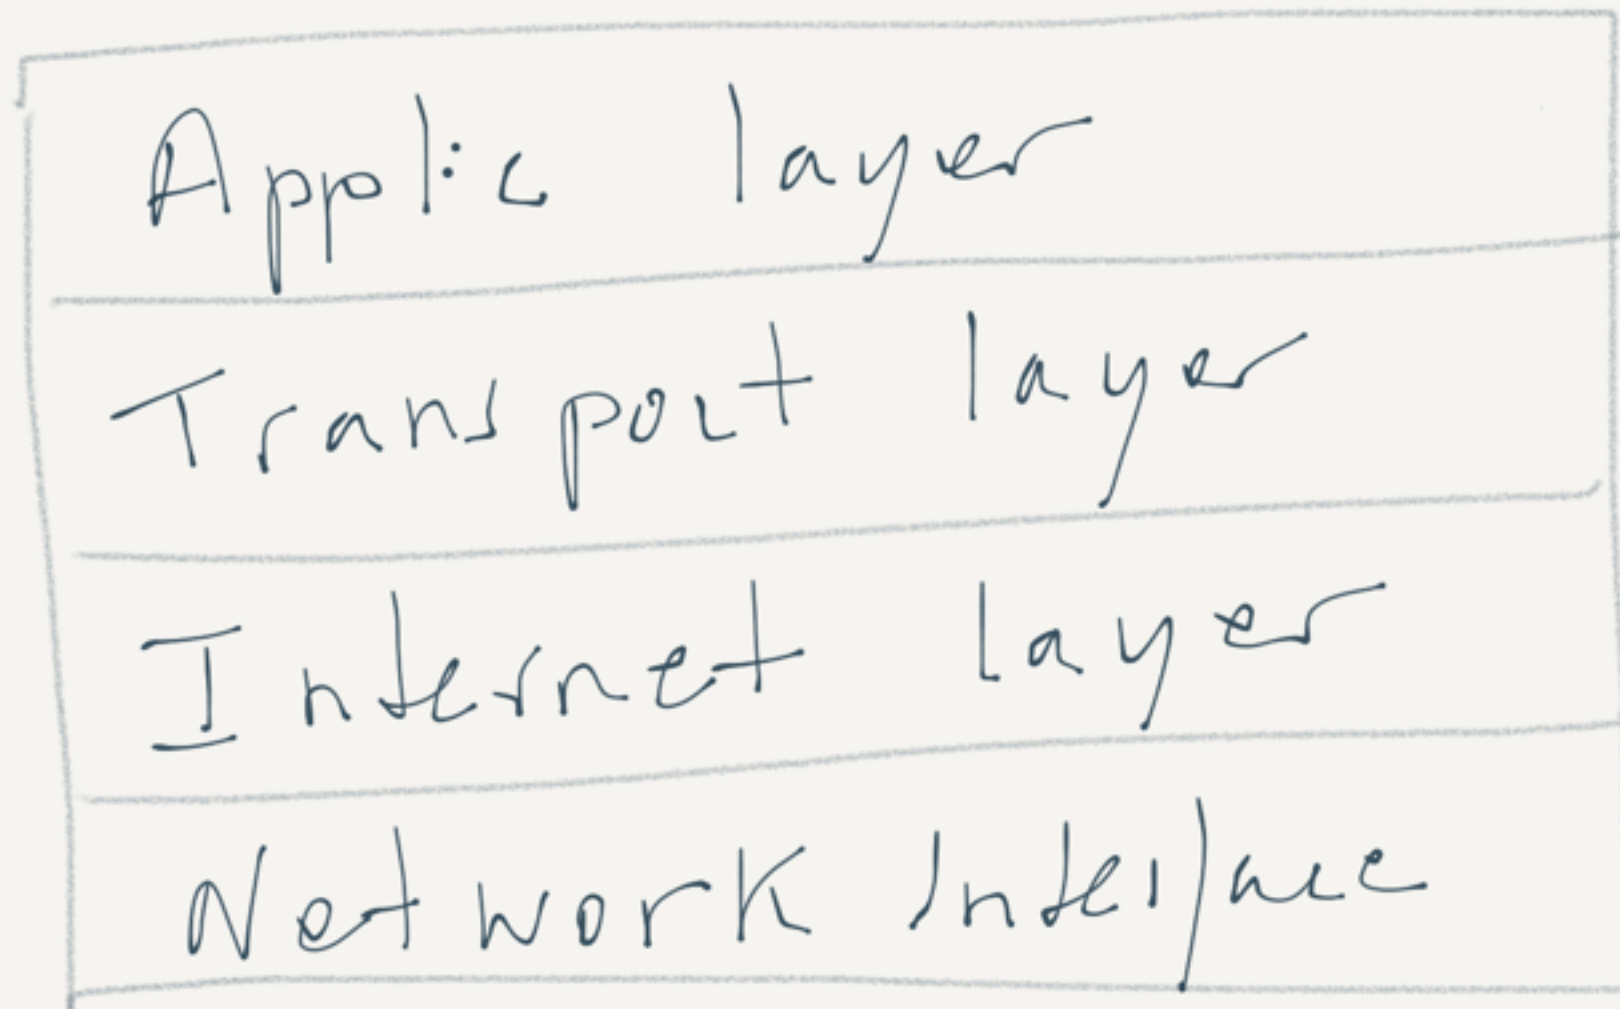 Applic layer
Transport layer
Internet layer
Network Interface